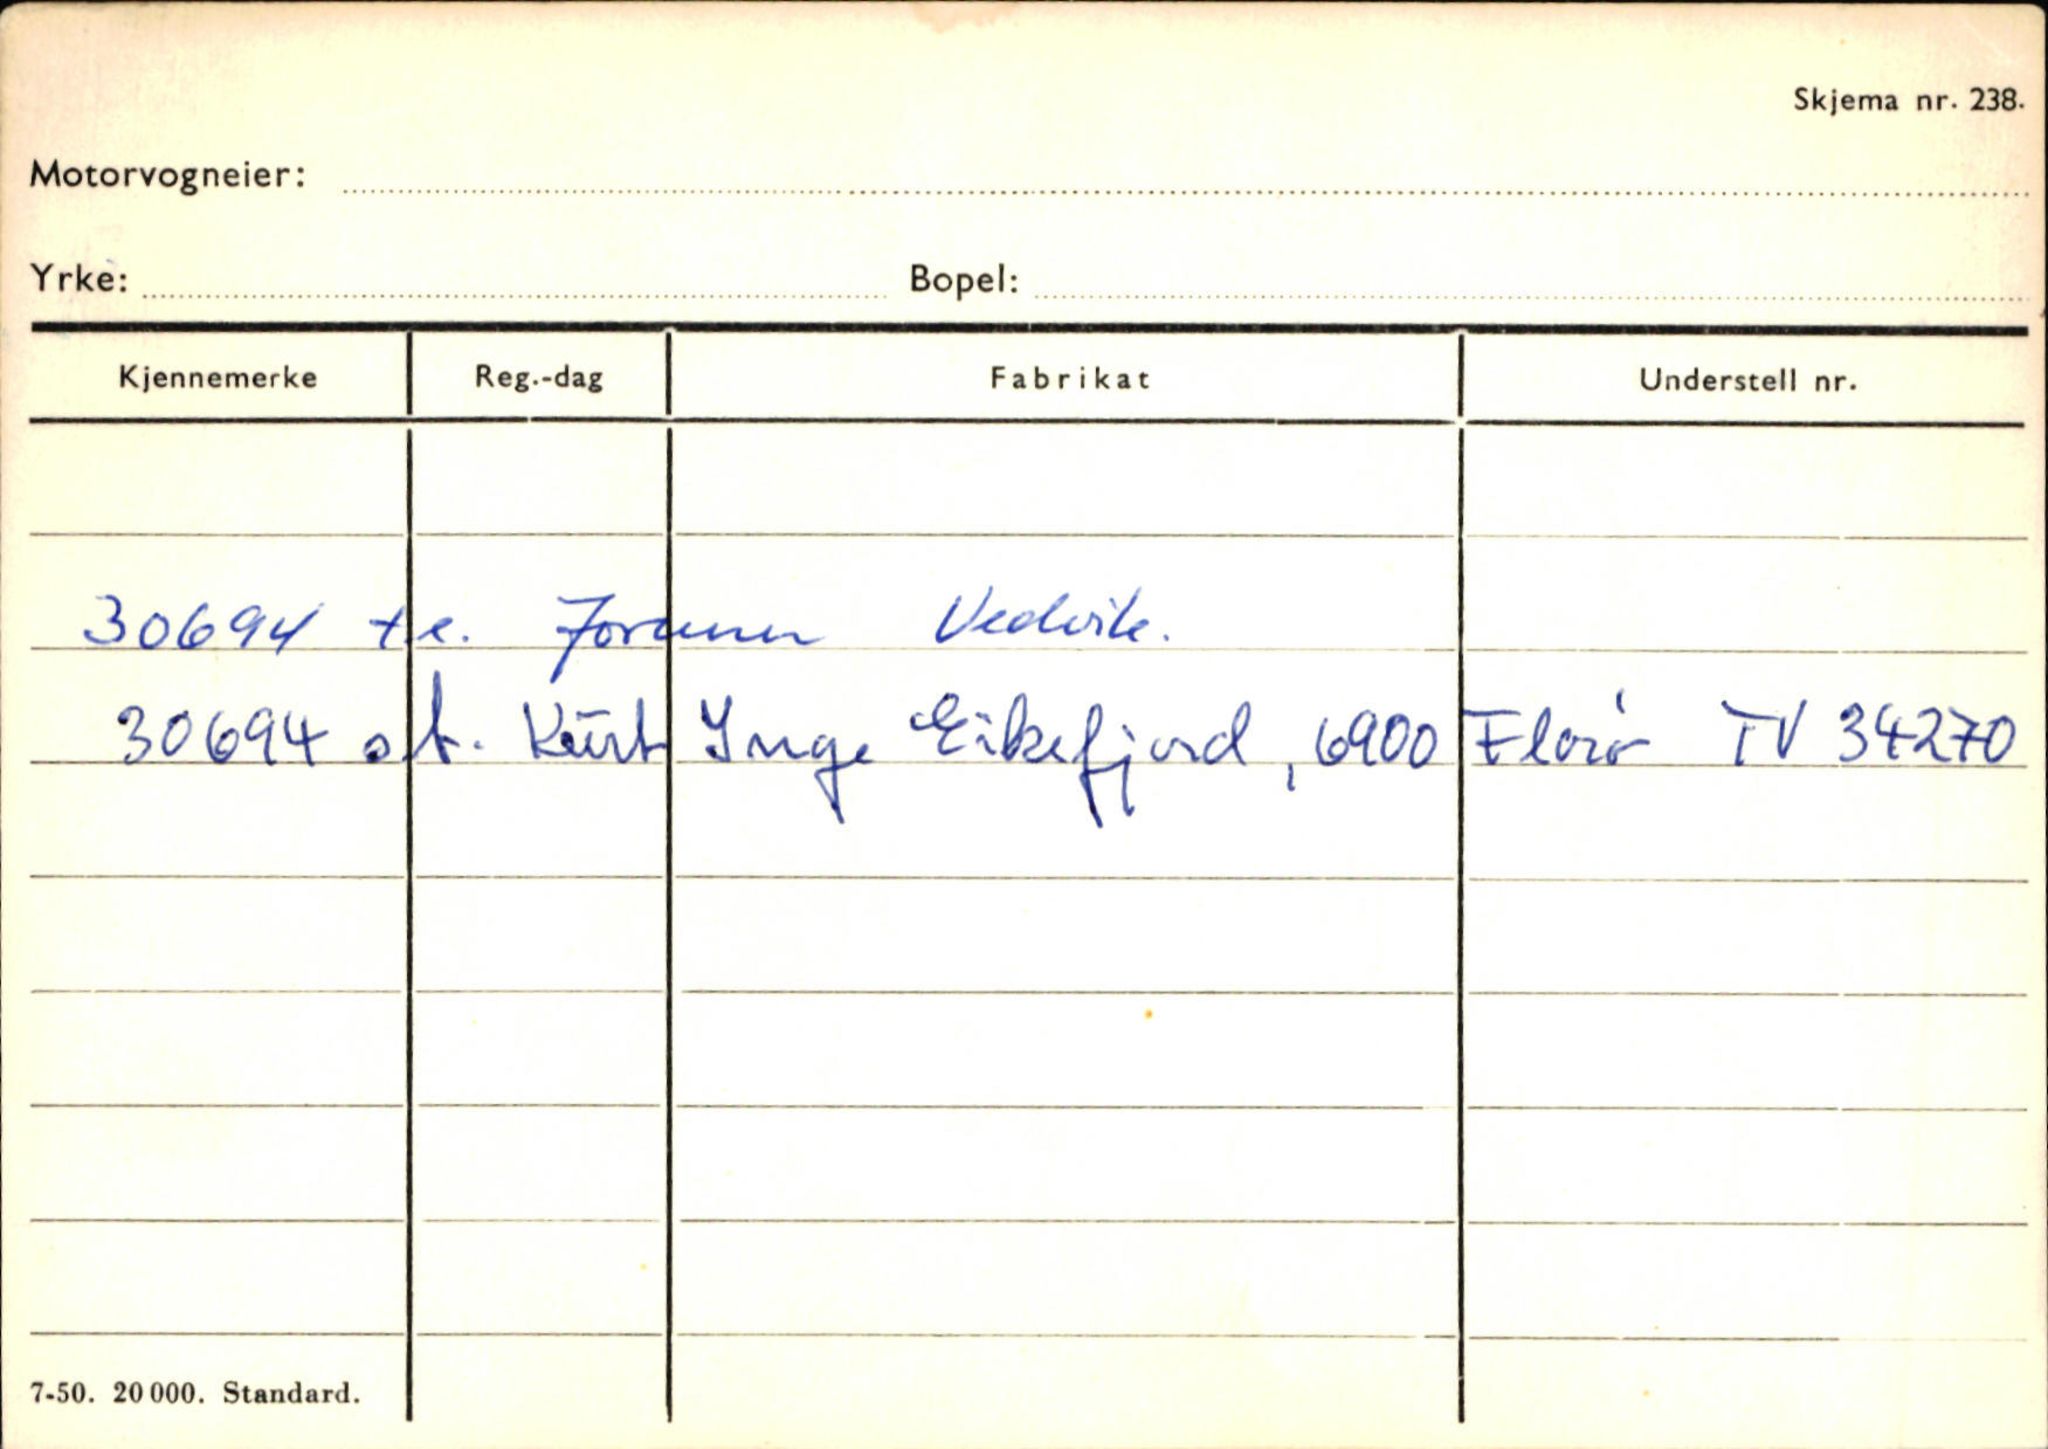 Skjema nr. 238.
Motorvogneier:
Yrke: Bopel:
Kjennemerke Reg.-dag Fabrikat Understell nr.
30694 t.e. Jorunn Vedvik.
30694 o.t. Kurt Inge Eikefjord, 6900 Florø TV 34270
7-50. 20 000. Standard.